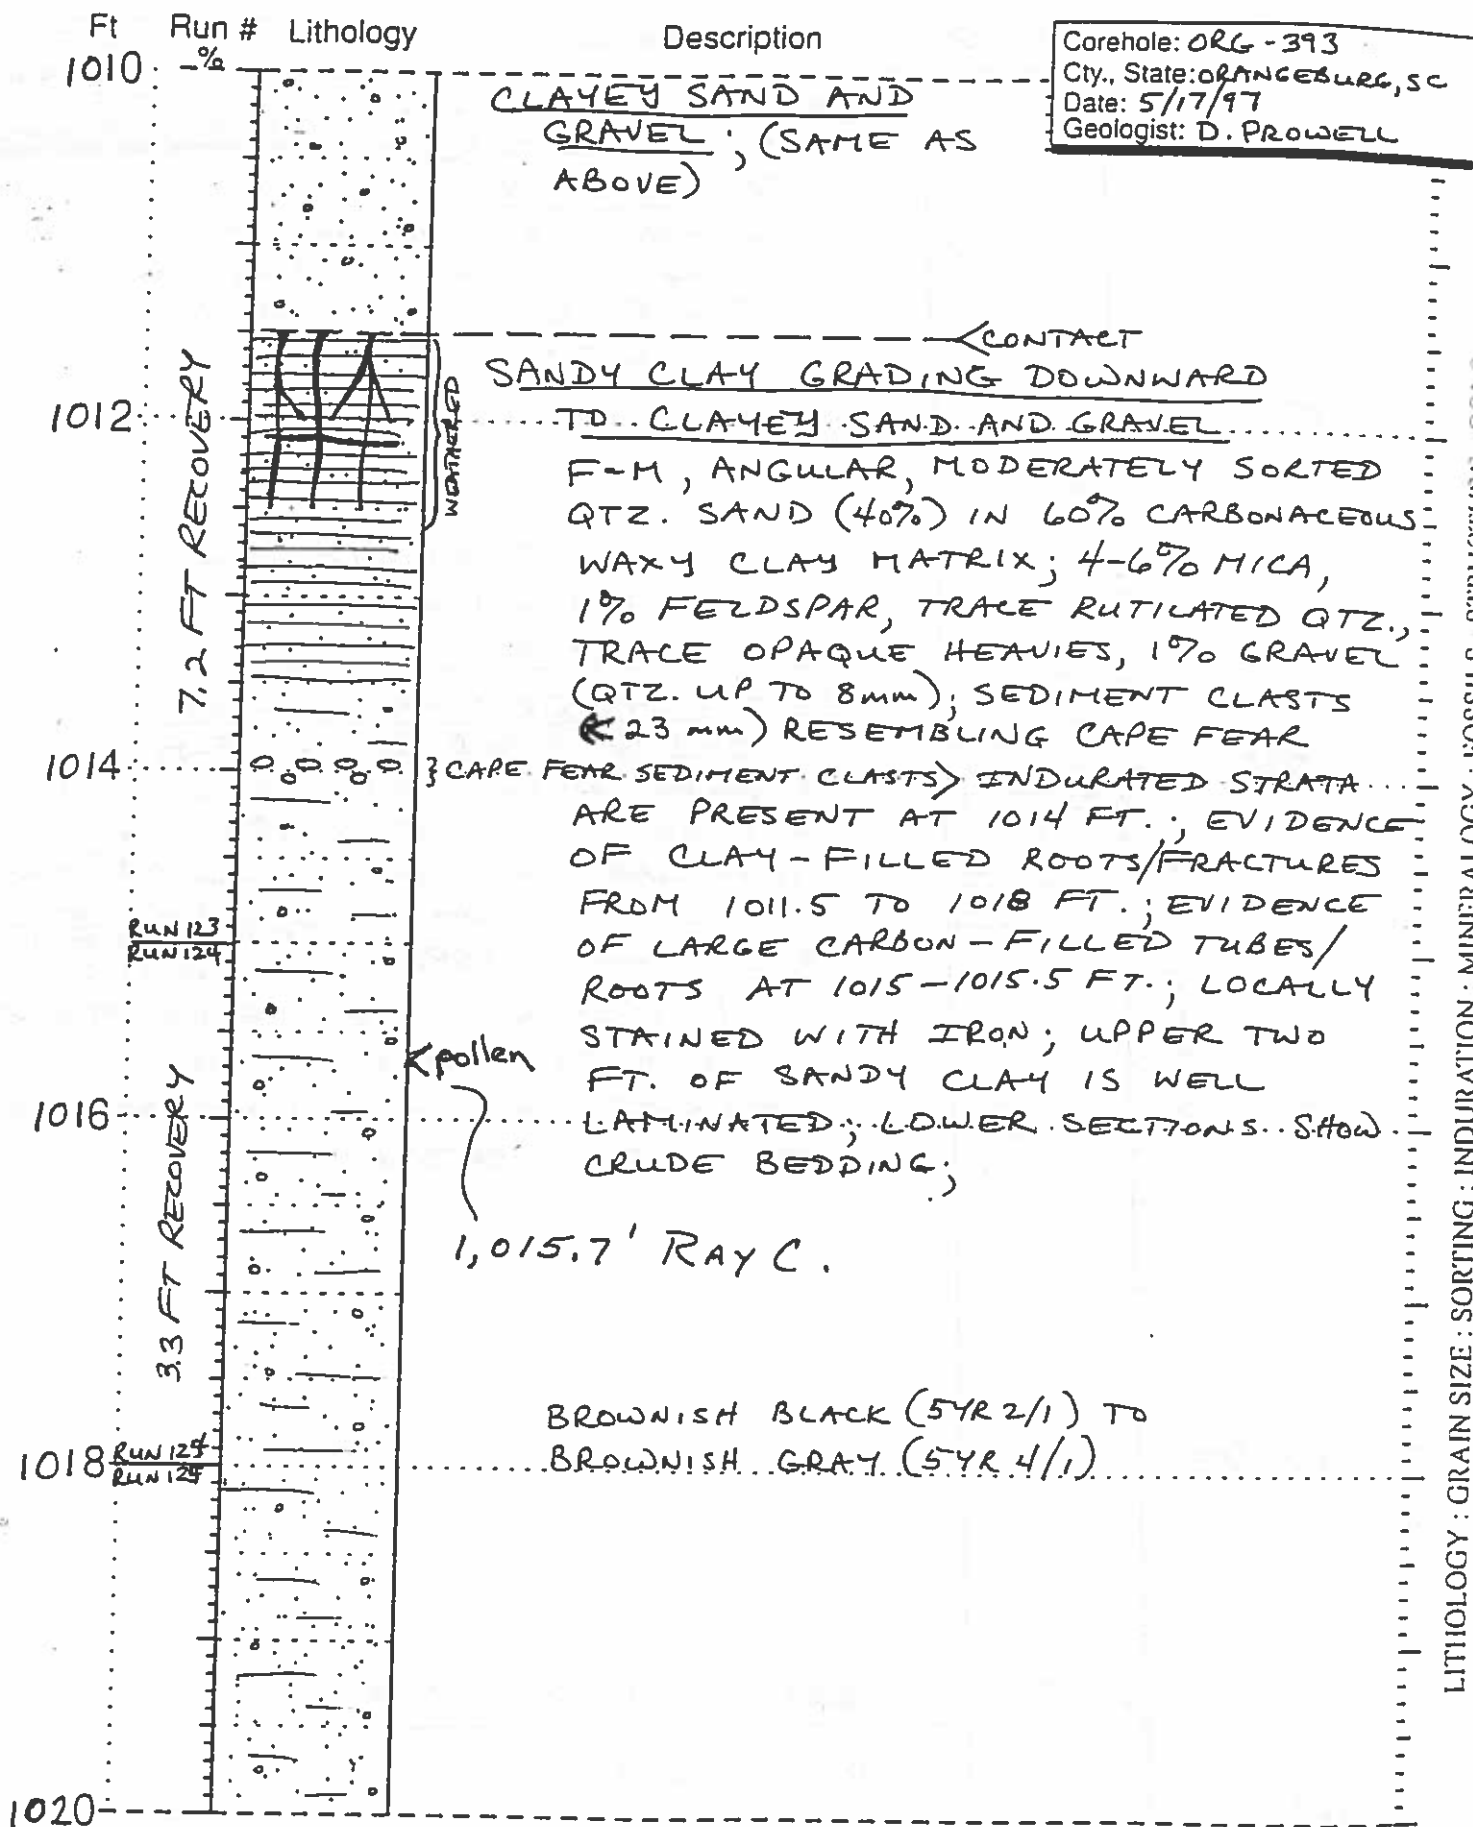 Ft Run # Lithology Description
-%
Corehole: ORG-393
Cty., State: ORANGEBURG, SC
Date: 5/17/97
Geologist: D. PROWELL
1010
CLAYEY SAND AND
GRAVEL; (SAME AS
ABOVE)
CONTACT
SANDY CLAY GRADING DOWNWARD
1012
TO CLAYEY SAND AND GRAVEL
WEATHERED
7.2 FT RECOVERY
F-M, ANGULAR, MODERATELY SORTED
QTZ. SAND (40%) IN 60% CARBONACEOUS
WAXY CLAY MATRIX; 4-6% MICA,
1% FELDSPAR, TRACE RUTILATED QTZ.,
TRACE OPAQUE HEAVIES, 1% GRAVEL
(QTZ. UP TO 8mm); SEDIMENT CLASTS
(< 23 mm) RESEMBLING CAPE FEAR
1014
} CAPE FEAR SEDIMENT CLASTS> INDURATED STRATA
ARE PRESENT AT 1014 FT.; EVIDENCE
OF CLAY-FILLED ROOTS/FRACTURES
FROM 1011.5 TO 1018 FT.; EVIDENCE
RUN 123
RUN 124
OF LARGE CARBON-FILLED TUBES/
ROOTS AT 1015-1015.5 FT.; LOCALLY
STAINED WITH IRON; UPPER TWO
<pollen
FT. OF SANDY CLAY IS WELL
1016
LAMINATED; LOWER SECTIONS SHOW
CRUDE BEDDING;
3.3 FT RECOVERY
1,015.7' RAY C.
BROWNISH BLACK (5YR 2/1) TO
BROWNISH GRAY (5YR 4/1)
1018
RUN 124
RUN 125
1020
LITHOLOGY : GRAIN SIZE : SORTING : INDURATION · MINERALOGY